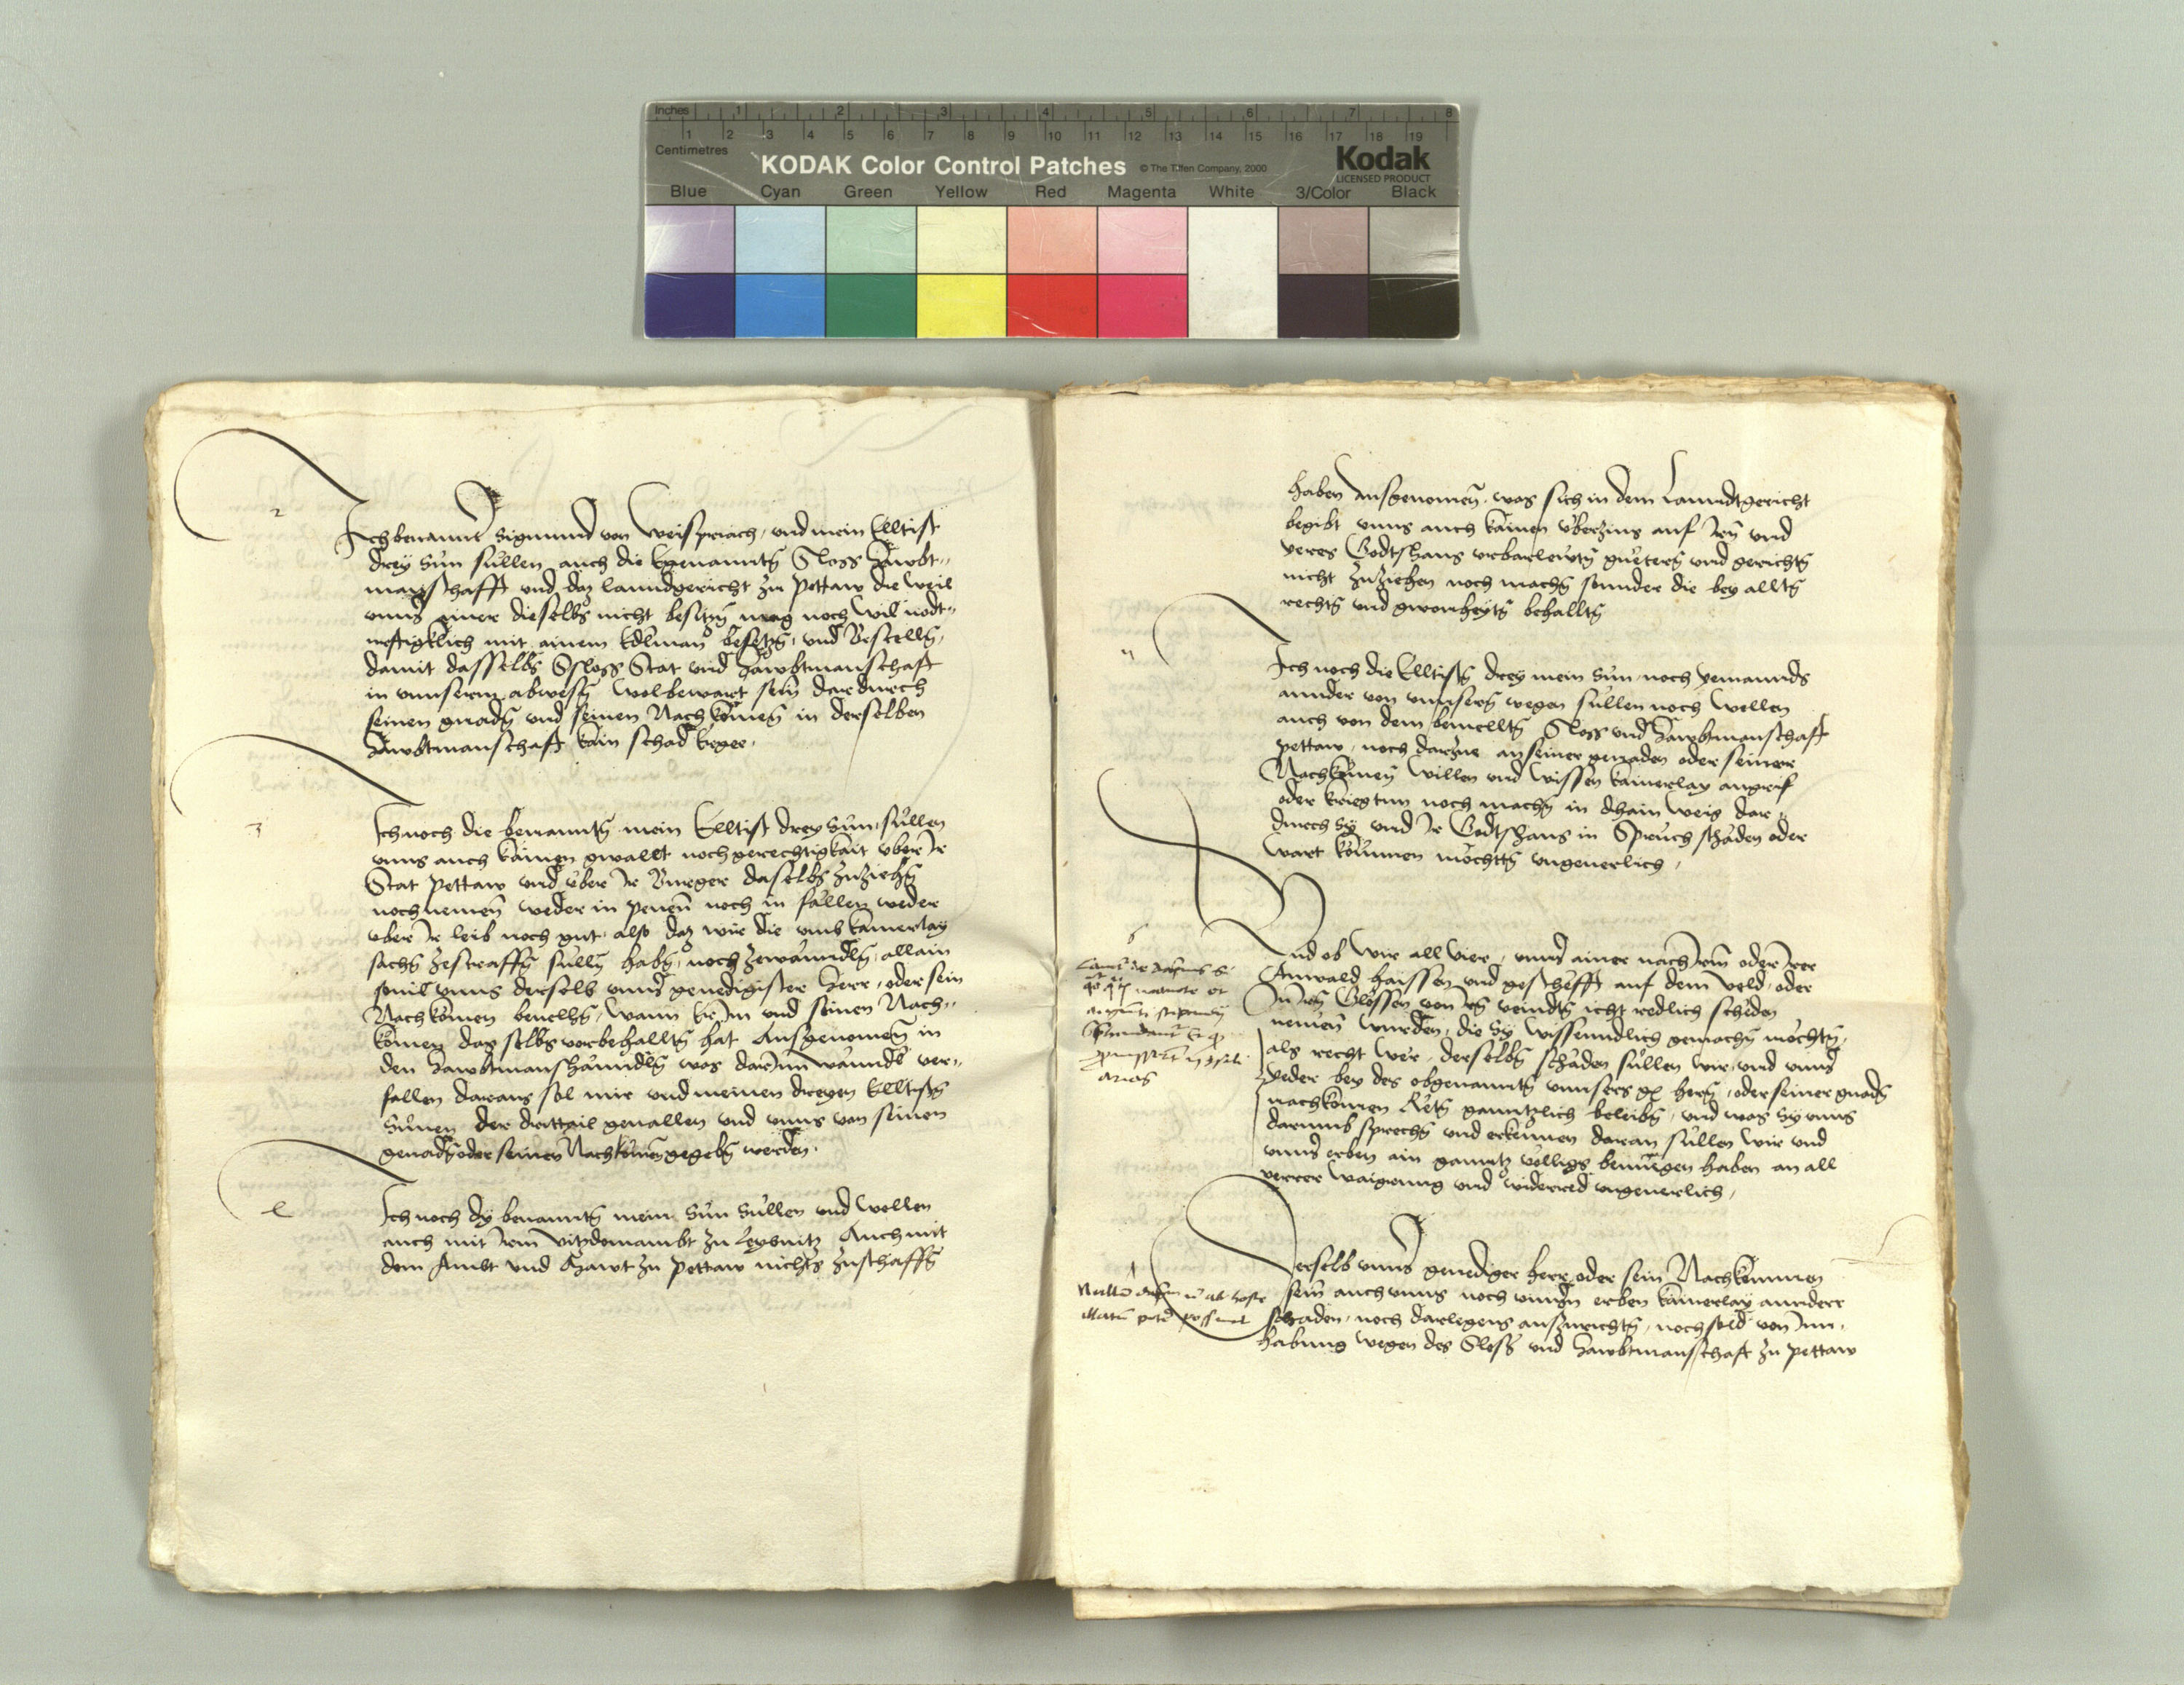 Inches 1 2 3 4 5 6 7 8
1 2 3 4 5 6 7 8 9 10 11 12 13 14 15 16 17 18 19
Centimetres
KODAK Color Control Patches © The Tiffen Company, 2000 Kodak
LICENSED PRODUCT
Blue Cyan Green Yellow Red Magenta White 3/Color Black
2
Ich benannt Sigmund von Weispriach, und mein Elltist
drey Sün süllen auch die egenanntn Sloss Hawbt„
manschafft und daz lanndgericht zu Pettaw die weil
unns ainer dieselbn nicht besitzn mag noch wil nodt„
urftigklich mit ainem Edlman besetzn, und Bestelln,
damit dasselb Gsloss Stat und Hawbtmanschaft
in unnserm abwesn wolbewart sein dardurch
seinen gnadn und seinen Nachkomen in derselben
Hawbtmanschaft kain schad ergee.
3
Ich noch die benanntn mein Elltist drey Sün, süllen
unns auch kainen gwallt noch gerechtigkait uber Ir
Stat Pettaw und über Ir Burger daselbs zuziehn
noch nemen weder in penen noch in fällen weder
über Ir leib noch gut, also daz wir die umb kainerlay
sachn zestraffn sülln habn, noch zewanndln, allain
sovil unns derselb unns genedigister Herr, oder sein
Nachkomen bevelhn, Wann er Im und seinen Nach„
komen das selbs vorbehalltn hat Ausgenomen in
den Hawbtmanshänndln was darinn wänndl ver„
fallen daraus sol mir und meinen dreyen Elltistn
Sünen der drittail gevallen und unns von seinen
genadn oder seinen Nachkomen gegebn werden.
Ich noch dy benanntn mein Sün Süllen und Wellen
auch mit Irem Vitzdomambt zu Leybnitz Auch mit
dem Ambt und Hawt zu Pettaw nichts zuschaffn
haben Ausgenomen, was sich in dem Lanndtgericht
begibt unns auch kainen überzins auf Irn und
Ires Godtshaus urbarlewtn guetern und gerichtn
nicht zuziehen noch machn sunnder die bey alltn
rechtn und gwonheytn behalltn
Ich noch die Elltistn drey mein Sün, noch yemannds
annder von unnsern wegen süllen noch Wellen
auch von dem bemelltn Sloss und Hawbtmanschaft
Pettaw, noch darzue an seiner genaden oder seiner
Nachkomen Willen und Wissen kainerlay angrif
oder krieg tun noch machn in dhain weis dar„
durch Sy und Ir Godtshaus in Spruch schäden oder
wart komen möchtn ungeverlich,
6
Und ob Wir all Vier, unns ainer nach Irm oder Irer
Anwäld haissen und geschefft auf dem veld, oder
In Irn Slössen von Irn veindtn icht redlich schäden
nemen wurden, die Sy wissenndlich gemachn möchtn,
als recht wer, derselbn schäden süllen wir, und unns
yeder bey des obgenanntn unnsers gn Hern, oder seiner gnadn
nachkomen Rätn genntzlich beleibn, und was Sy unns
darumb sprechn und erkennen daran süllen Wir und
unns erben ain ganntz völligs benügen haben an all
verrer waigrung und widerred ungeverlich,
Derselb unns genediger herr oder sein Nachkomen
sein auch unns noch unnsn erben kainerlay annderr
schaden, noch darlegens auszurichtn, noch sold von Inn„
habung wegen des Sloss und Hawbtmanschaft zu Pettaw